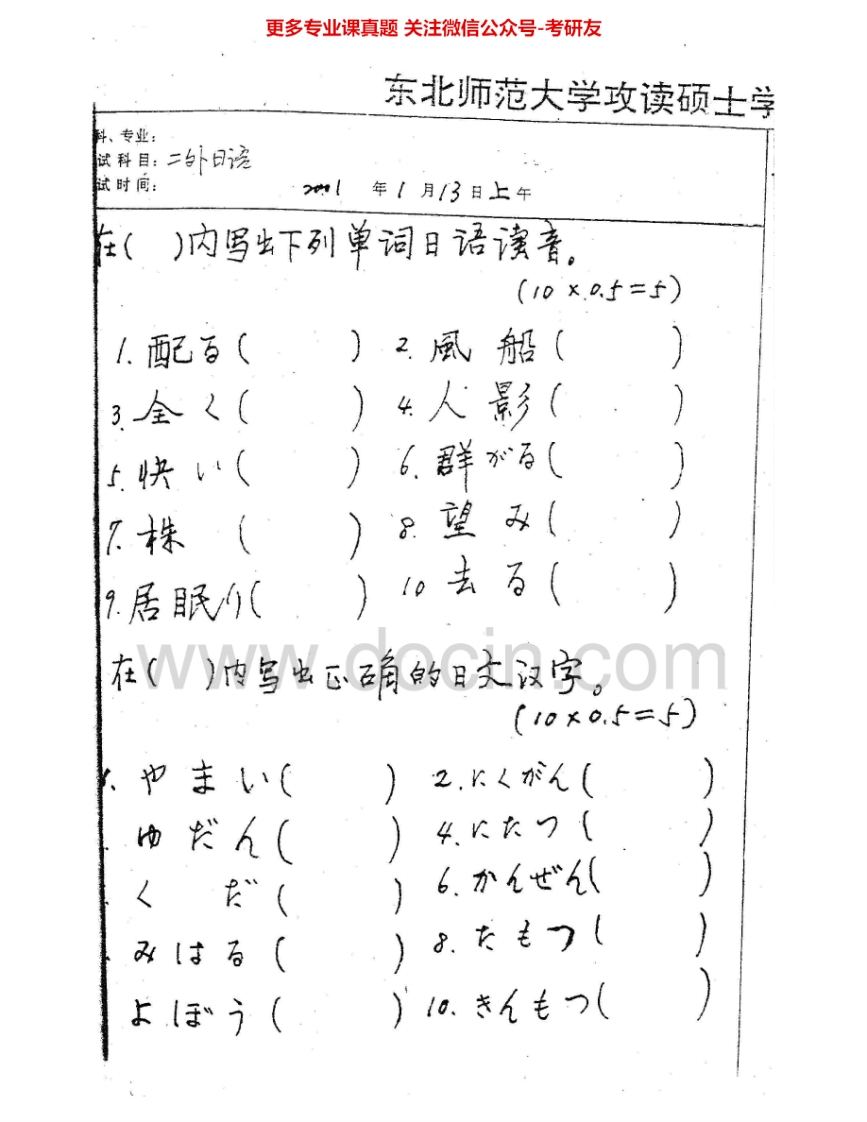 更多专业课真题 关注微信公众号-考研友
东北师范大学攻读硕士学
科、专业：
试科目：二外日语
试时间： 2001 年1月13日上午
在( )内写出下列单词日语读音。
(10×0.5=5)
1. 配る( ) 2. 風船( )
3. 全く( ) 4. 人影( )
5. 快い( ) 6. 群がる( )
7. 株( ) 8. 望み( )
9. 居眠り( ) 10 去る( )
在( )内写出正确的日文汉字。
(10×0.5=5)
やまい( ) 2. にくがん( )
ゆだん( ) 4. にたつ( )
くだ( ) 6. かんぜん( )
みはる( ) 8. たもつ( )
よぼう( ) 10. きんもつ( )
www.docin.com